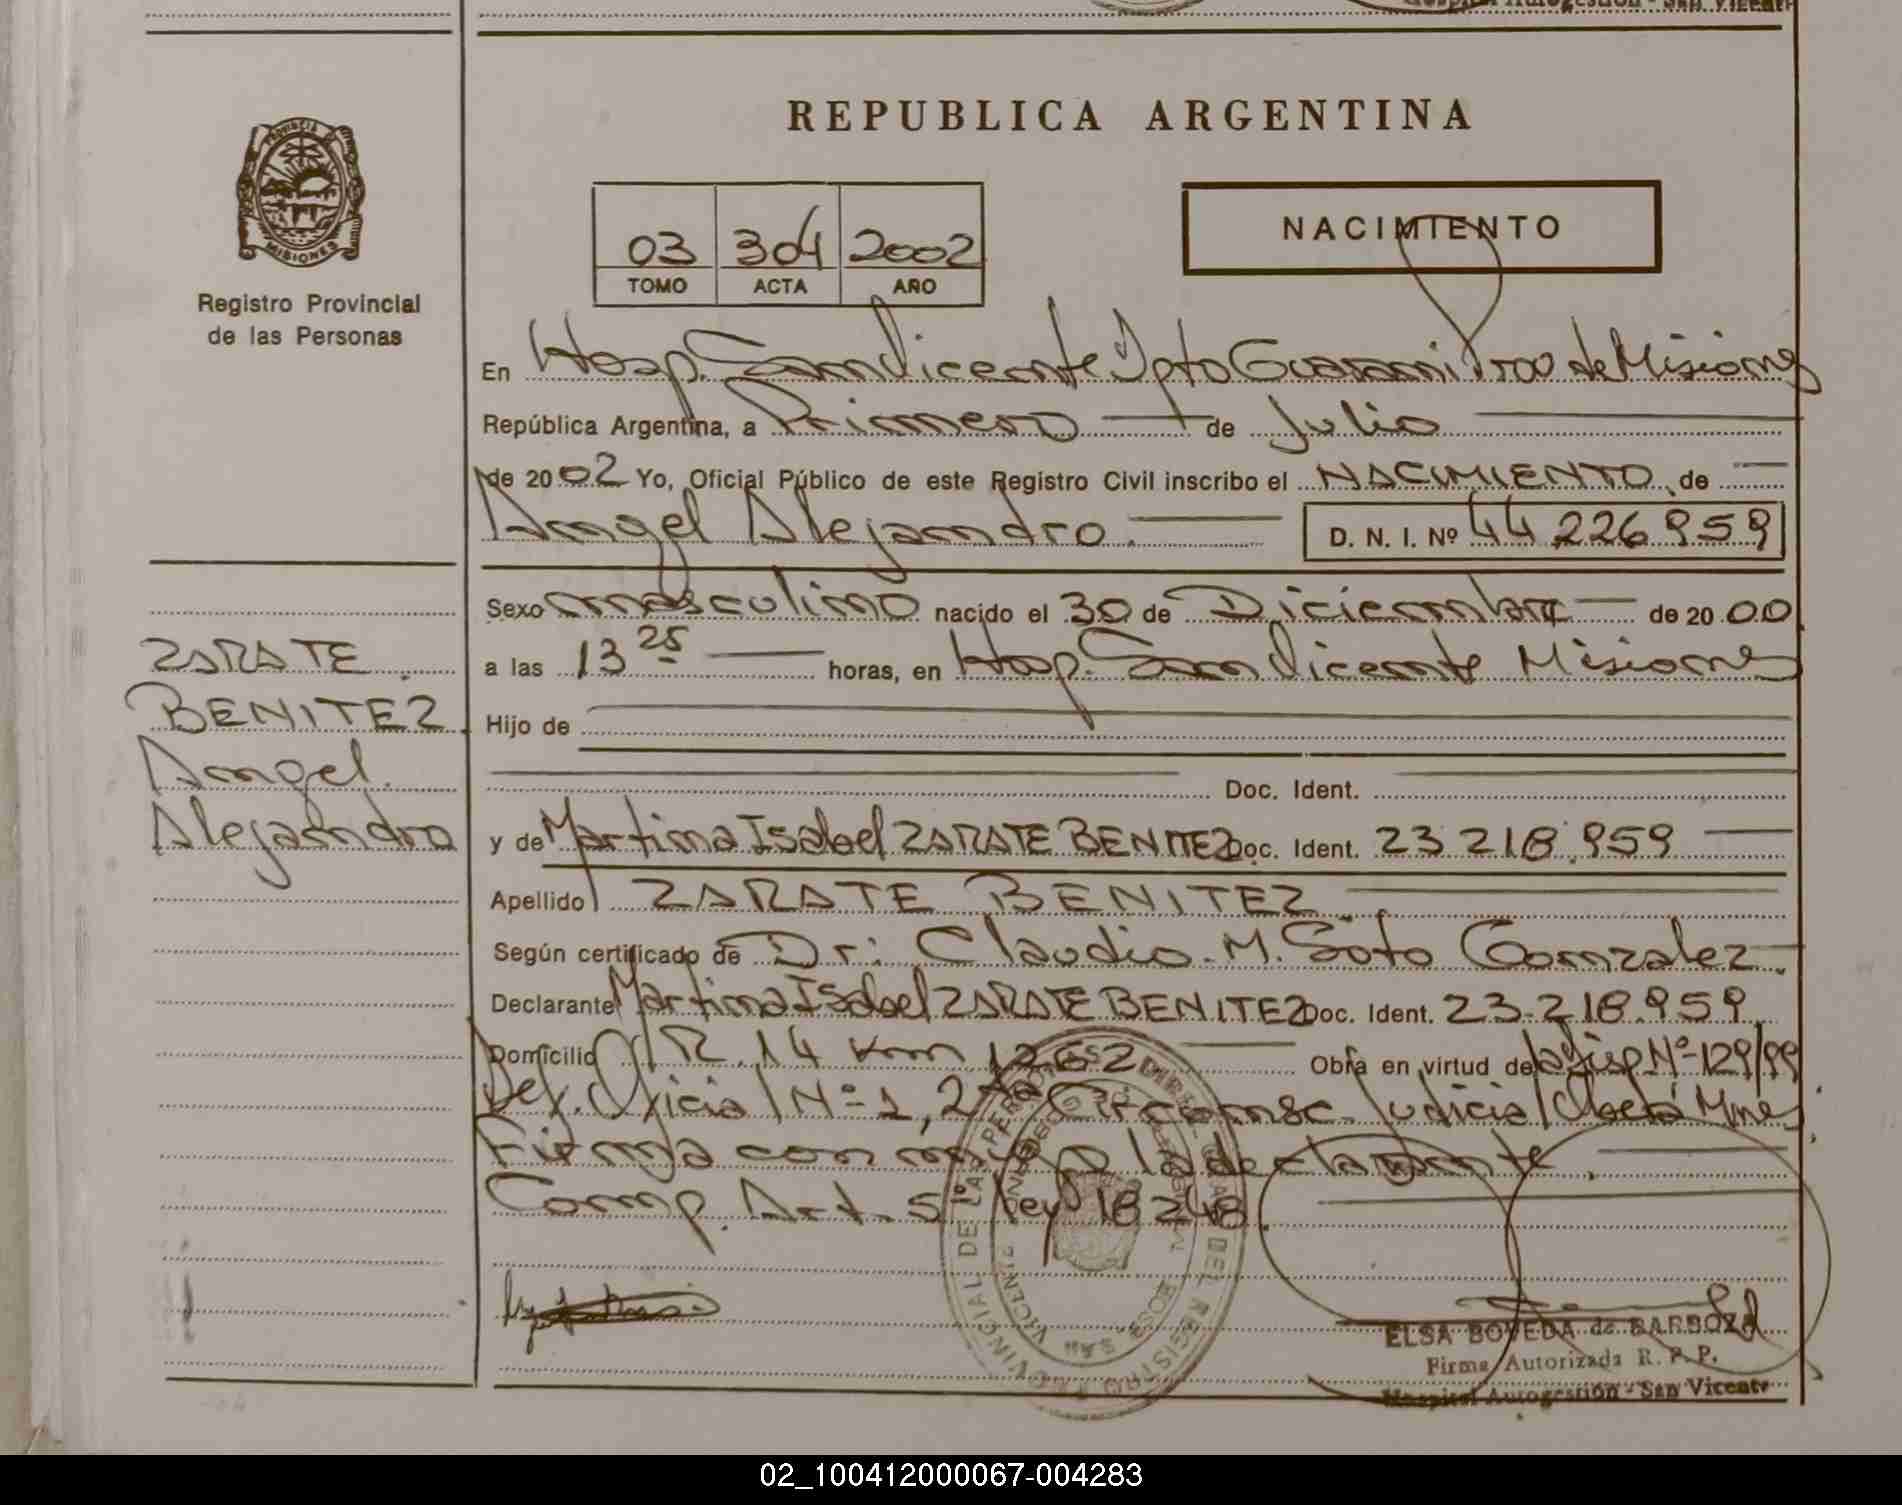 Hospital Autogestión - San Vicente
REPUBLICA ARGENTINA
PROVINCIA
MISIONES
Registro Provincial
de las Personas
03 304 2002
TOMO ACTA AÑO
NACIMIENTO
En Hosp. San Vicente Dpto Guarani Prov de Misiones
República Argentina, a Primero de Julio
de 2002 Yo, Oficial Público de este Registro Civil inscribo el NACIMIENTO de
Angel Alejandro. D. N. I. Nº 44 226 959
Sexo masculino nacido el 30 de Diciembre de 2000
a las 13 25 horas, en Hosp. San Vicente Misiones
Hijo de
Doc. Ident.
y de Martina Isabel ZARATE BENITEZ Doc. Ident. 23 218.959
Apellido ZARATE BENITEZ
Según certificado de Dr: Claudio. M. Soto Gonzalez.
Declarante Martina Isabel ZARATE BENITEZ Doc. Ident. 23.218.959
Domicilio R. 14 Km 1262 Obra en virtud de la Disp Nº 129/99
Def. Oficial Nº 1, 2da Circunsc. Judicial Oberá Mnes
Firma con migo la declarante.
Comp. Art. 5 ley 18248.
ZARATE
BENITEZ
Angel.
Alejandro
ELSA BOVEDA de BARBOZA
Firma Autorizada R. P. P.
Hospital Autogestión - San Vicente
02_100412000067-004283